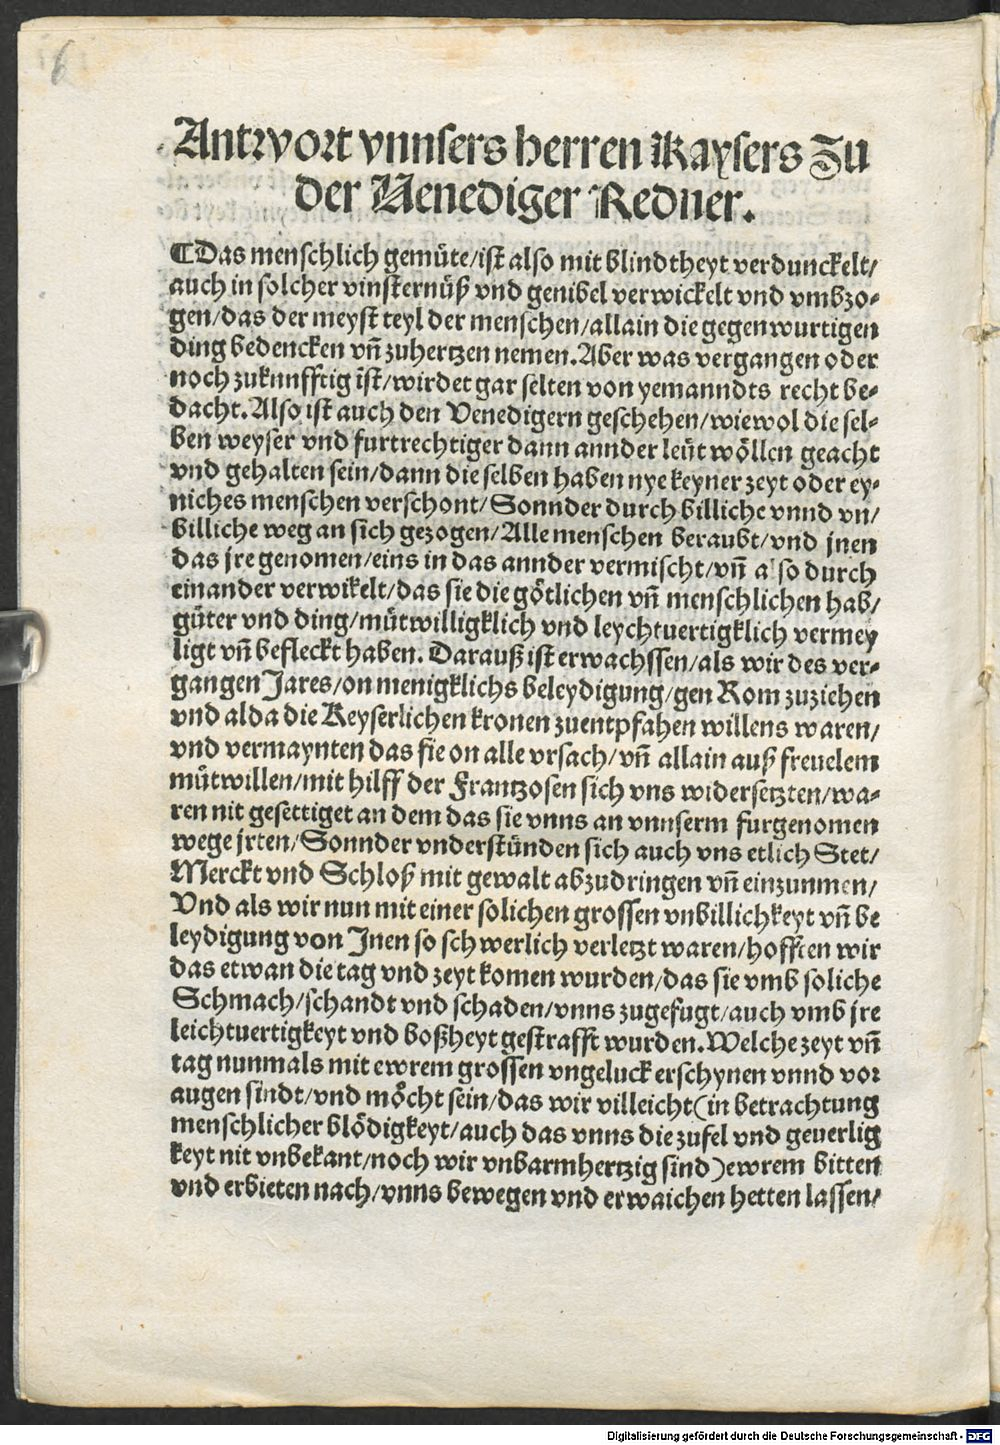 6
Antwort vnnsers herren Kaysers Zu
der Venediger Redner.
¶Das menschlich gemüte/ist also mit blindtheyt verdunckelt/
auch in solcher vinsternüß vnd genibel verwickelt vnd vmbzo-
gen/das der meyst teyl der menschen/allain die gegenwurtigen
ding bedencken vn̄ zuhertzen nemen. Aber was vergangen oder
noch zukunfftig ist/wirdet gar selten von yemanndts recht be-
dacht. Also ist auch den Venedigern geschehen/wiewol die sel-
ben weyser vnd furtrechtiger dann annder leüt wöllen geacht
vnd gehalten sein/dann die selben haben nye keyner zeyt oder ey-
niches menschen verschont/Sonnder durch billiche vnnd vn/
billiche weg an sich gezogen/Alle menschen beraubt/vnd jnen
das jre genomen/eins in das annder vermischt/vn̄ also durch
einander verwikelt/das sie die götlichen vn̄ menschlichen hab/
güter vnd ding/mütwilligklich vnd leychtuertigklich vermey
ligt vn̄ befleckt haben. Darauß ist erwachssen/als wir des ver-
gangen Jares/on menigklichs beleydigung/gen Rom zuziehen
vnd alda die Keyserlichen kronen zuentpfahen willens waren/
vnd vermaynten das sie on alle vrsach/vn̄ allain auß freuelem
mütwillen/mit hilff der Frantzosen sich vns widersetzten/wa-
ren nit gesettiget an dem das sie vnns an vnnserm furgenomen
wege jrten/Sonnder vnderstünden sich auch vns etlich Stet/
Merckt vnd Schloß mit gewalt abzudringen vn̄ einzunmen/
Vnd als wir nun mit einer solichen grossen vnbillichkeyt vn̄ be
leydigung von Jnen so schwerlich verletzt waren/hofften wir
das etwan die tag vnd zeyt komen wurden/das sie vmb soliche
Schmach/schandt vnd schaden/vnns zugefugt/auch vmb jre
leichtuertigkeyt vnd boßheyt gestrafft wurden. Welche zeyt vn̄
tag nunmals mit ewrem grossen vngeluck erschynen vnnd vor
augen sindt/vnd möcht sein/das wir villeicht(in betrachtung
menschlicher blödigkeyt/auch das vnns die zufel vnd geuerlig
keyt nit vnbekant/noch wir vnbarmhertzig sind)ewrem bitten
vnd erbieten nach/vnns bewegen vnd erwaichen hetten lassen/
Digitalisierung gefördert durch die Deutsche Forschungsgemeinschaft - DFG